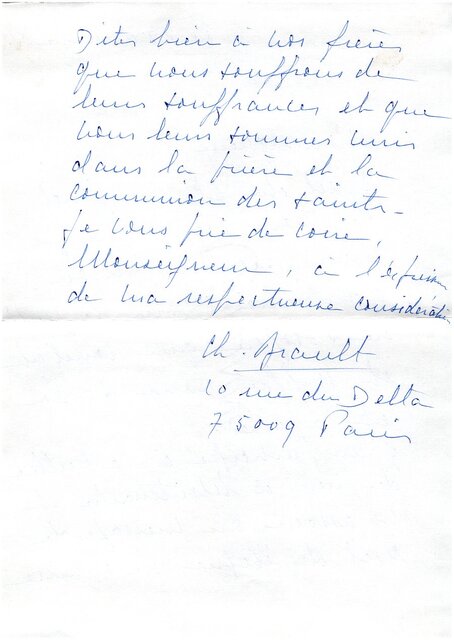 Dites bien à nos frères
que nous souffrons de
leurs souffrances et que
nous leurs sommes unis
dans la prière et la
communion des saints.
Je vous prie de croire,
Monseigneur, à l'expression
de ma respectueuse considération
Ch. Brault
10 rue du Delta
75009 Paris